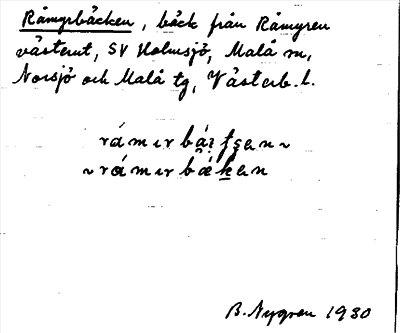 Råmyrbäcken, bäck från Råmyren
västerut, SV Holmsjö, Malå sn,
Norsjö och Malå tg, Västerb. l.
rámırb
~ rámırb
B. Nygren 1930